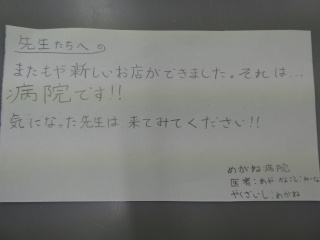 先生たちへの
またもや新しいお店ができました。それは…
病院です!!
気になった先生は来てみてください!!
めがね病院
医者:あや かなこ
やくざいし:めがね